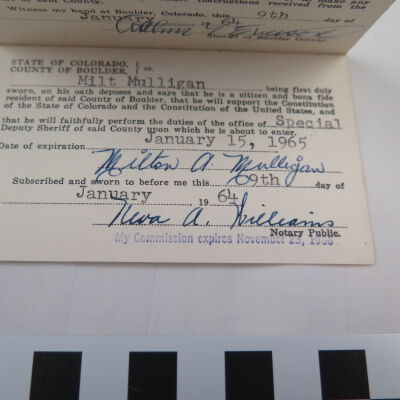 of said County of Boulder, under instructions received from the
Witness my hand at Boulder, Colorado, this 9th day of
January 19 64
Sheriff of Boulder County.
STATE OF COLORADO, } ss.
COUNTY OF BOULDER,
Milt Mulligan being first duly
sworn, on his oath deposes and says that he is a citizen and bona fide
resident of said County of Boulder, that he will support the Constitution
of the State of Colorado and the Constitution of the United States, and
that he will faithfully perform the duties of the office of Special
Deputy Sheriff of said County upon which he is about to enter.
Date of expiration January 15, 1965
Milton A. Mulligan
Subscribed and sworn to before me this 9th day of
January 19 64
Neva A. Williams
Notary Public.
My Commission expires November 23, 1966